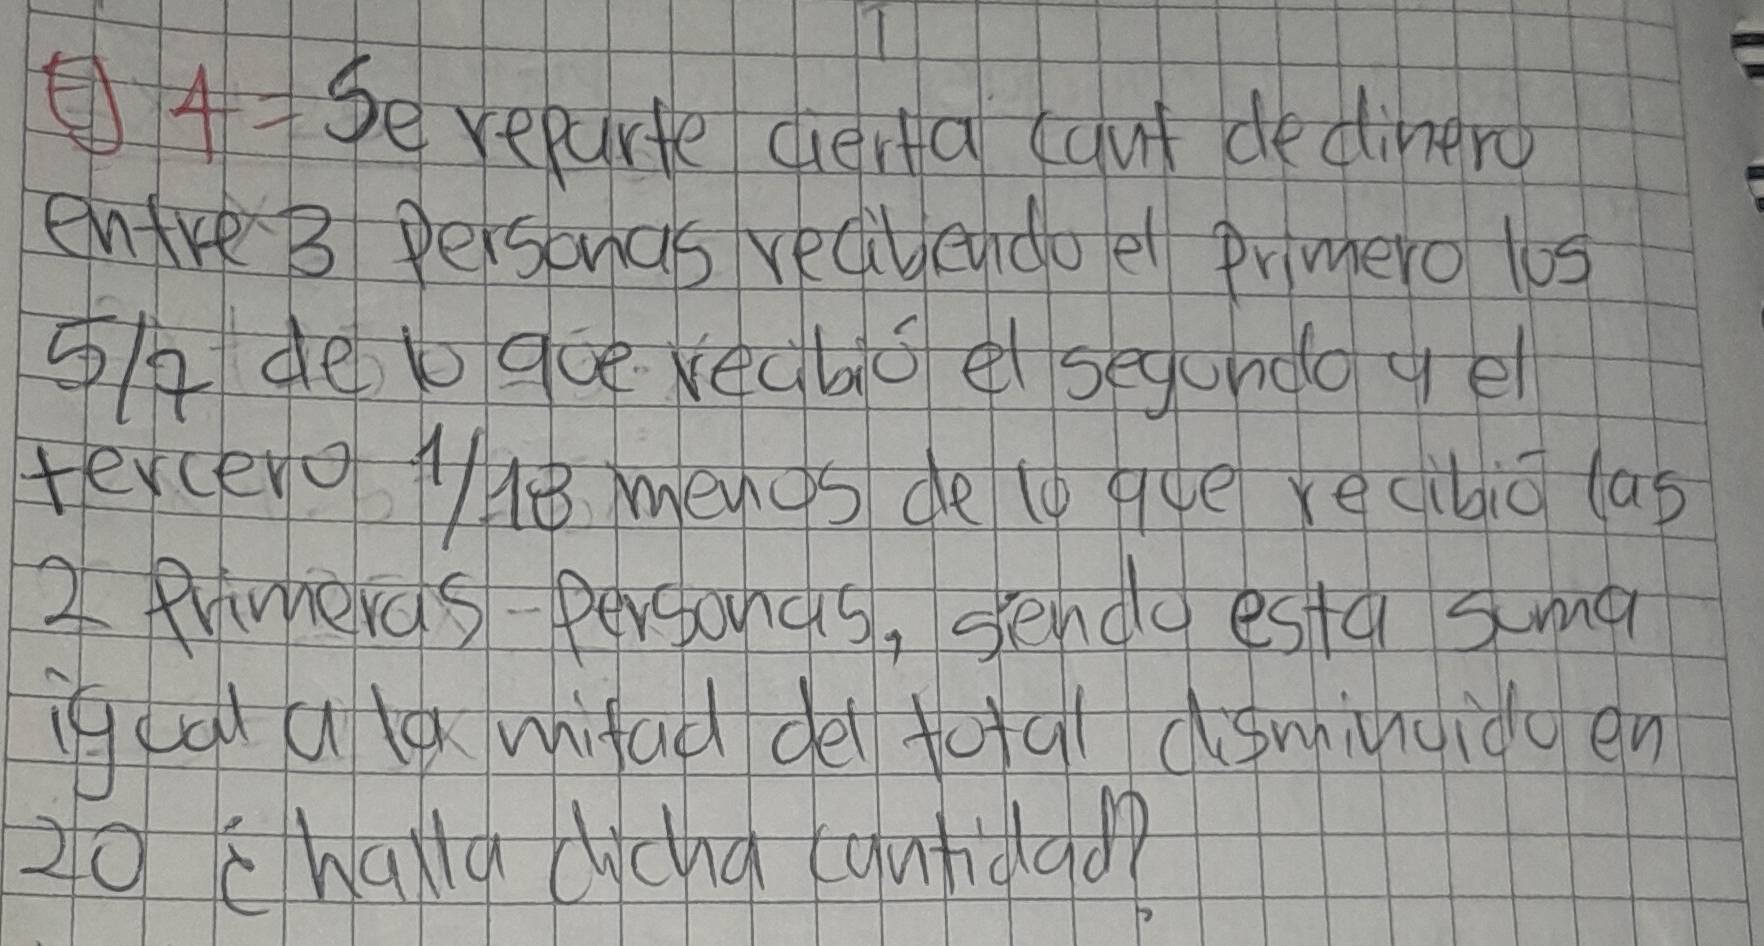 E) 4 = Se reparte cierta cant de dinero
entre 3 Personas recibendo el primero los
5/7 de lo que recibió el segundo y el
tercero 1/18 menos de lo que recibió las
2 Primeras - Personas, siendo esta suma
igual a la mitad del total disminuido en
20 ¿ halla dicha cantidad?